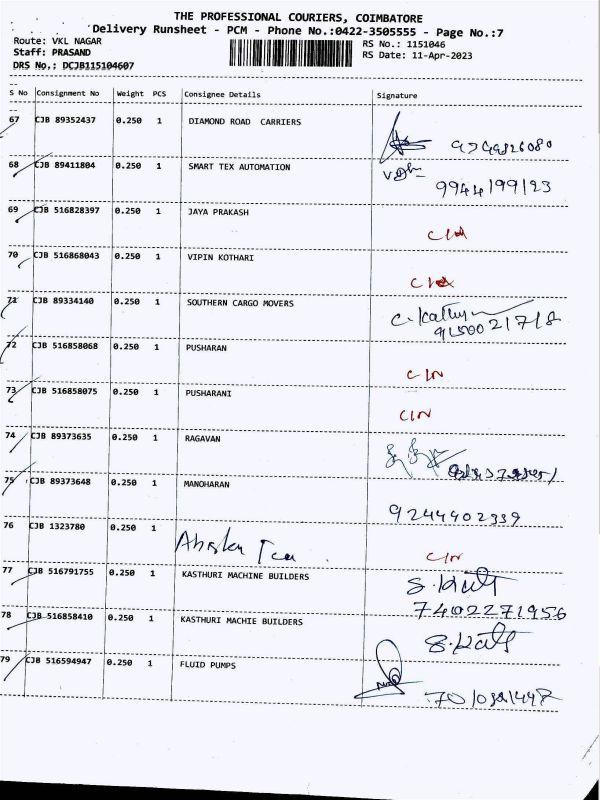 THE PROFESSIONAL COURIERS, COIMBATORE
Delivery Runsheet - PCM - Phone No.:0422-3505555 - Page No.:7
Route: VKL NAGAR RS No.: 1151046
Staff: PRASAND RS Date: 11-Apr-2023
DRS No.: DCJB115104607
S No Consignment No Weight PCS Consignee Details Signature
67 CJB 89352437 0.250 1 DIAMOND ROAD CARRIERS
68 CJB 89411804 0.250 1 SMART TEX AUTOMATION
9944199123
69 CJB 516828397 0.250 1 JAYA PRAKASH
70 CJB 516868043 0.250 1 VIPIN KOTHARI
71 CJB 89334140 0.250 1 SOUTHERN CARGO MOVERS
72 CJB 516858068 0.250 1 PUSHARAN
C/N
73 CJB 516858075 0.250 1 PUSHARANI
C/N
74 CJB 89373635 0.250 1 RAGAVAN
75 CJB 89373648 0.250 1 MANOHARAN
9244402339
76 CJB 1323780 0.250 1
C/N
77 CJB 516791755 0.250 1 KASTHURI MACHINE BUILDERS
7402271956
78 CJB 516858410 0.250 1 KASTHURI MACHIE BUILDERS
79 CJB 516594947 0.250 1 FLUID PUMPS